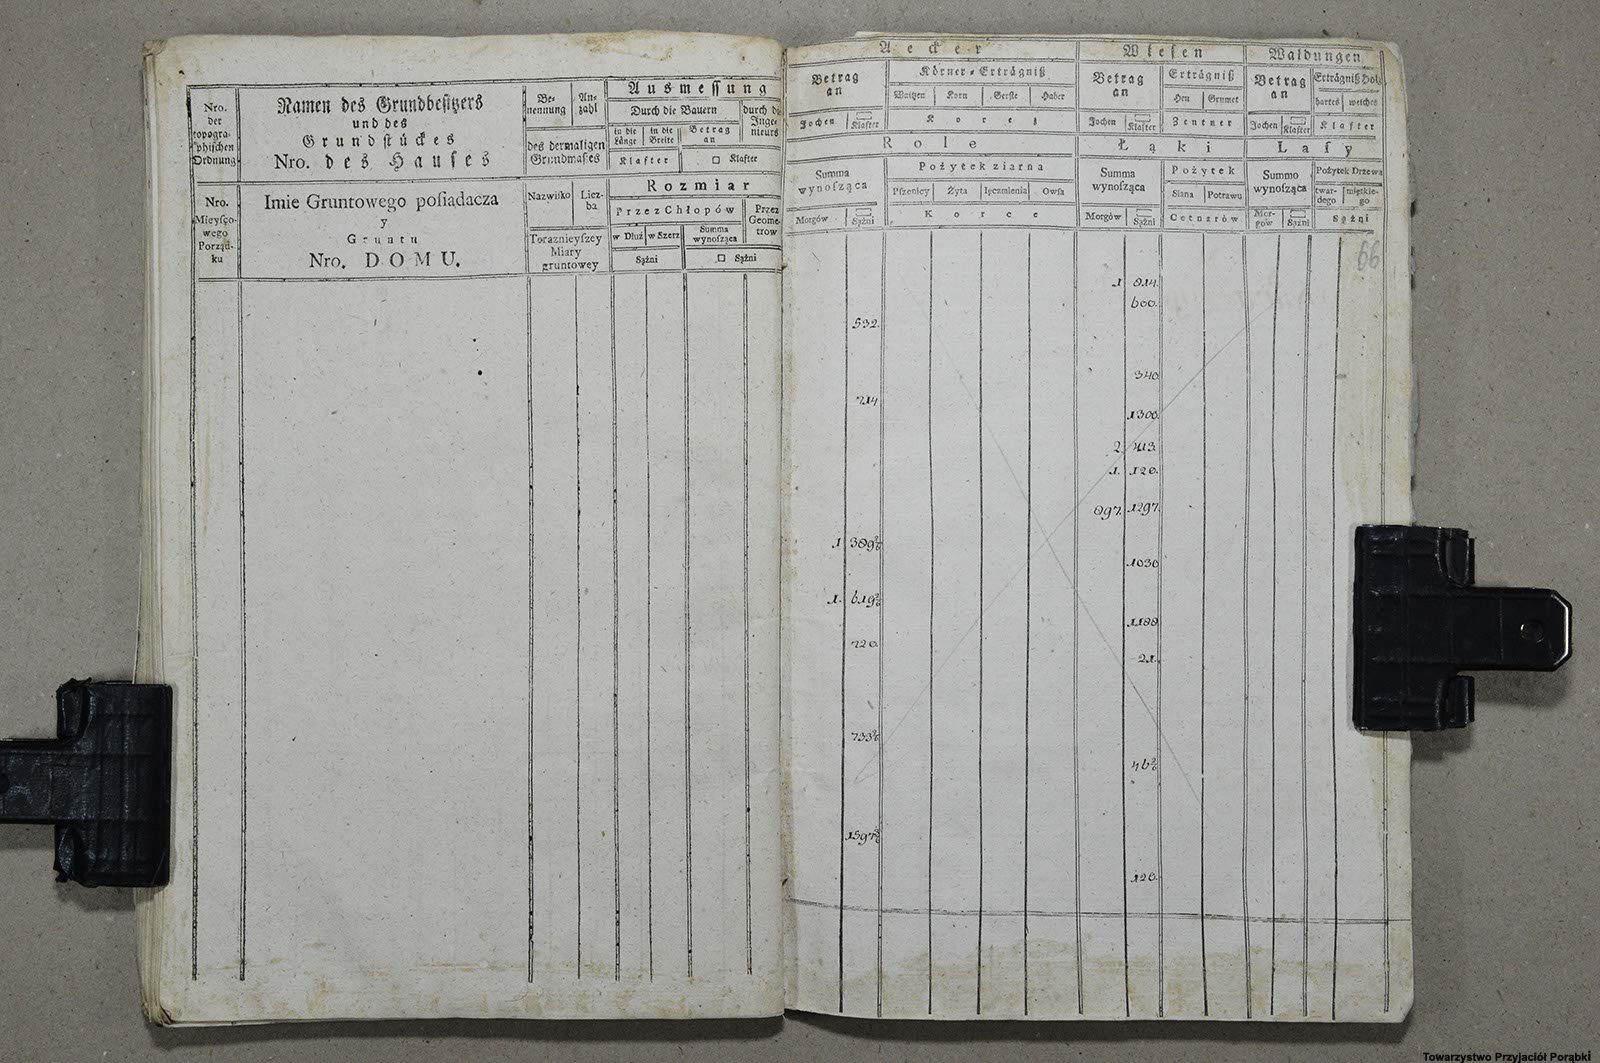 Nro. der topogra-phischen Ordnung
Namen des Grundbesitzers
und des
Grundstückes
Nro. des Hauses
Be-nennung
An-zahl
des dermaligen Grundmaßes
Ausmessung
Durch die Bauern
durch die Inge-nieurs
in die Länge
in die Breite
Betrag an
Klafter
□ Klafter
Nro.
Mieyſço-
wego
Porząd-
ku
Imie Gruntowego poſiadacza
y
Gruntu
Nro. DOMU.
Nazwiſko
Licz-ba
Toraznieyſzey
Miary
gruntowey
Rozmiar
Przez Chłopów
Przez Geome-trow
w Dłuż
w Szerz
Summa wynoſząca
Sążni
□ Sążni
Aecker
Wiesen
Waldungen
Betrag an
Körner-Erträgniß
Betrag an
Erträgniß
Betrag an
Erträgniß Holz
Waitzen
Korn
Gerste
Haber
Heu
Grumet
hartes
weiches
Jochen
□ Klafter
Korez
Jochen
□ Klafter
Zentner
Jochen
□ Klafter
Klafter
Role
Łąki
Laſy
Summa wynoſząca
Pożytek ziarna
Summa wynoſząca
Pożytek
Summo wynoſząca
Pożytek Drzewa
Pſzenicy
Żyta
Ięczmienia
Owſa
Siana
Potrawu
twar-dego
miętkie-go
Morgów
□ Sążni
Korce
Morgów
□ Sążni
Cetnarów
Mor-gów
□ Sążni
Sążni
66
1 814.
600.
532.
340.
714
1300.
2 413.
1. 120.
897. 1297.
1 389 2/6
1030
1. 619 2/6
1188
720.
21.
733 2/6
46 2/6
1597 3/6
120.
Towarzystwo Przyjaciół Porąbki